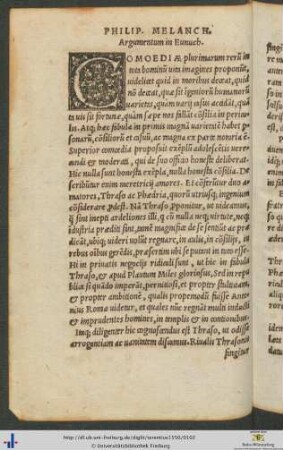 PHILIP. MELANCH.
Argumentum in Eunuch.
COMOEDIÆ plurimarum rerū in
tres hominū vitæ imagines proponūt,
videlicet quid in moribus deceat, quid
nō deceat, quæ sit igeniorū humanorū
varietas, quam varij casus accidāt, quā
ta vis sit fortunæ, quàm sæpe nos fallāt cōsilia in pericu
lis. Atq; hæc fabula in primis magnā varietatē habet per
sonarū, cōsiliorū et casuū, ac magna ex parte novaria ē.
Superior comœdia proposuit exēpla adolescētis vere
cundi & moderati, qui de suo officio honeste deliberat.
Hic nulla sunt honesta exēpla, nulla honesta cōsilia. De
scribitur enim meretricij amores. Et cōferūtur duo a-
matores, Thraso & Phædria, quorū utriusq; ingenium
cōsiderare pdest. Nā Thraso pponitur, ut videamus,
q̄ sint inepti ardeliones illi, q̄ cū nulla neq; virtute, neq;
idustria præditi sint, tamē magnificē de se sentiūt ac præ
dicāt, ubiq; videri volūt regnare, in aula, in cōsilijs, in
rebus oībus gerēdis, præsertim ubi se putant in
Hi in privatis negocijs ridiculi sunt, ut hic in fabula
Thraso, & apud Plautum Miles gloriosus, Sed in repu
blica si quādo imperāt, perniciosi, et propter stultitiam,
& propter ambitionē, qualis propemodū fuisse Anto
nius Romæ videtur, et quales nūc regnāt multi indocti
& imprudentes homines, in templis & in contionibus.
Itaq; diligenter hic cognoscendus est Thraso, ut odisse
arrogantiam ac vanitatem discamus. Rivalis Thrasonis
fingitur
http://dl.ub.uni-freiburg.de/diglit/terentius1550/0102
© Universitätsbibliothek Freiburg